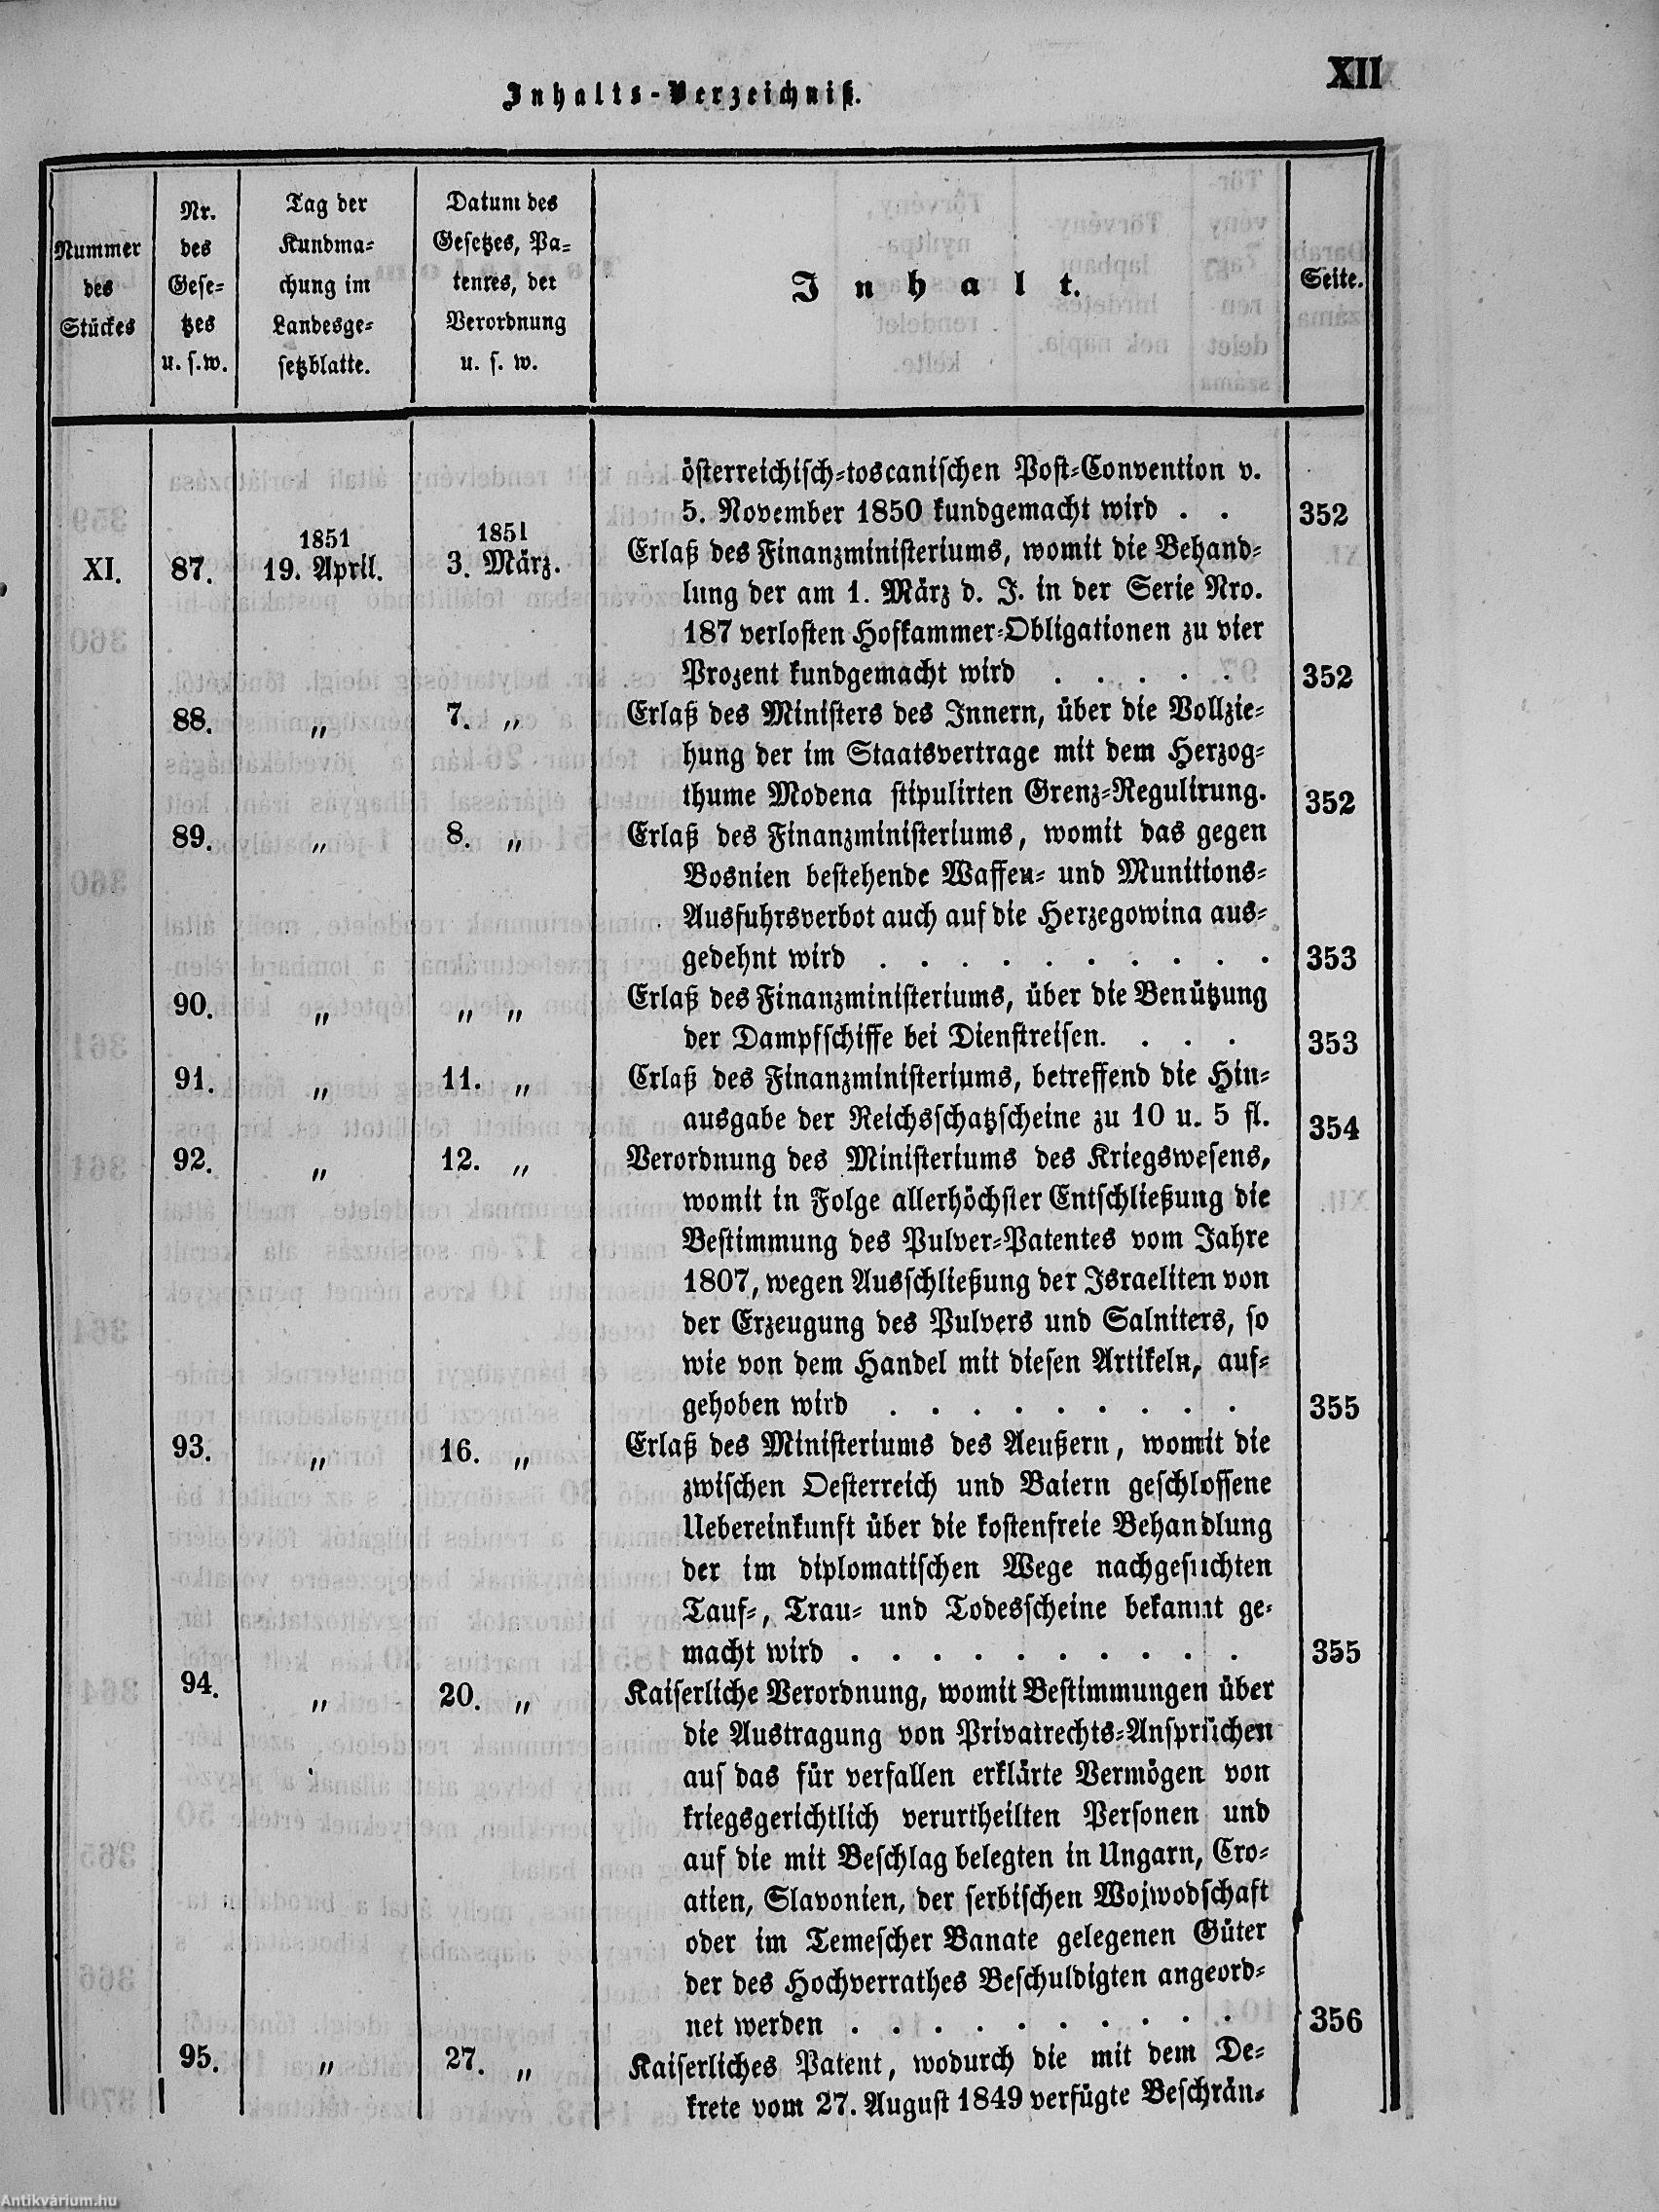 Inhalts-Verzeichniß.
XII
Nummer
des
Stückes
Nr.
des
Gese-
tzes
u. s.w.
Tag der
Kundma-
chung im
Landesge-
setzblatte.
Datum des
Gesetzes, Pa-
tentes, der
Verordnung
u. s. w.
Inhalt.
Seite.
österreichisch-toscanischen Post-Convention v.
5. November 1850 kundgemacht wird . . 352
1851 1851
XI. 87. 19. April. 3. März. Erlaß des Finanzministeriums, womit die Behand-
lung der am 1. März d. J. in der Serie Nro.
187 verlosten Hofkammer-Obligationen zu vier
Prozent kundgemacht wird . . . . . 352
88. „ 7. „ Erlaß des Ministers des Innern, über die Vollzie-
hung der im Staatsvertrage mit dem Herzog-
thume Modena stipulirten Grenz-Regulirung. 352
89. „ 8. „ Erlaß des Finanzministeriums, womit das gegen
Bosnien bestehende Waffen- und Munitions-
Ausfuhrsverbot auch auf die Herzegowina aus-
gedehnt wird . . . . . . . . . . 353
90. „ „ „ Erlaß des Finanzministeriums, über die Benützung
der Dampfschiffe bei Dienstreisen. . . . 353
91. „ 11. „ Erlaß des Finanzministeriums, betreffend die Hin-
ausgabe der Reichsschatzscheine zu 10 u. 5 fl. 354
92. „ 12. „ Verordnung des Ministeriums des Kriegswesens,
womit in Folge allerhöchster Entschließung die
Bestimmung des Pulver-Patentes vom Jahre
1807, wegen Ausschließung der Israeliten von
der Erzeugung des Pulvers und Salniters, so
wie von dem Handel mit diesen Artikeln, auf-
gehoben wird . . . . . . . . . 355
93. „ 16. „ Erlaß des Ministeriums des Aeußern, womit die
zwischen Oesterreich und Baiern geschlossene
Uebereinkunft über die kostenfreie Behandlung
der im diplomatischen Wege nachgesuchten
Tauf-, Trau- und Todesscheine bekannt ge-
macht wird . . . . . . . . . . 355
94. „ 20. „ Kaiserliche Verordnung, womit Bestimmungen über
die Austragung von Privatrechts-Ansprüchen
auf das für verfallen erklärte Vermögen von
kriegsgerichtlich verurtheilten Personen und
auf die mit Beschlag belegten in Ungarn, Cro-
atien, Slavonien, der serbischen Wojwodschaft
oder im Temescher Banate gelegenen Güter
der des Hochverrathes Beschuldigten angeord-
net werden . . . . . . . . . . 356
95. „ 27. „ Kaiserliches Patent, wodurch die mit dem De-
krete vom 27. August 1849 verfügte Beschrän-
Antikvárium.hu